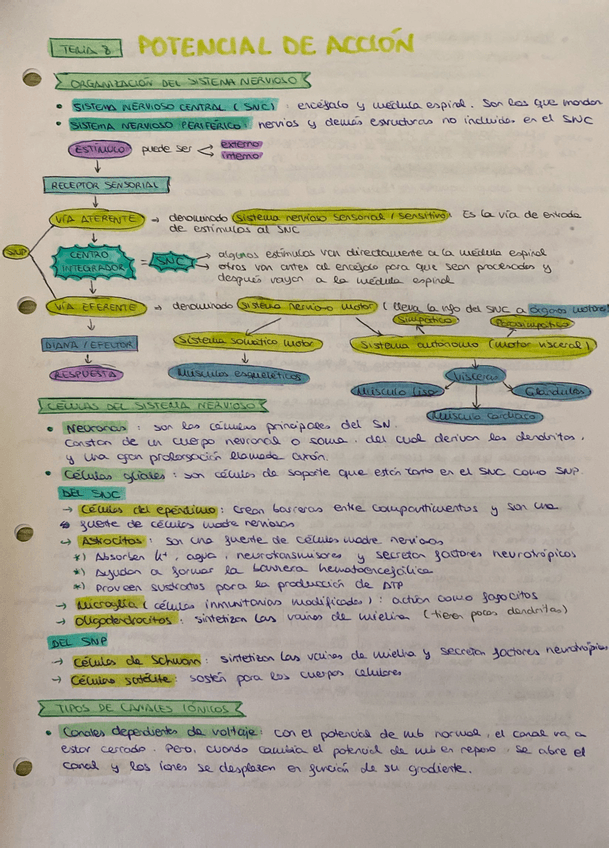 TEMA 8 POTENCIAL DE ACCIÓN
ORGANIZACIÓN DEL SISTEMA NERVIOSO
• SISTEMA NERVIOSO CENTRAL (SNC): encéfalo y médula espinal. Son los que mandan
• SISTEMA NERVIOSO PERIFÉRICO: nervios y demás estructuras no incluidas en el SNC
ESTÍMULO puede ser externo
interno
RECEPTOR SENSORIAL
VÍA AFERENTE → denominado Sistema nervioso sensorial / sensitivo. Es la vía de entrada
de estímulos al SNC
SNP
CENTRO INTEGRADOR = SNC → algunos estímulos van directamente a la médula espinal
→ otros van antes al encéfalo para que sean procesados y
después vayan a la médula espinal
VÍA EFERENTE → denominado Sistema nervioso motor (lleva la info del SNC a órganos motores)
Simpático Parasimpático
DIANA / EFECTOR Sistema somático motor Sistema autónomo (motor visceral)
RESPUESTA Músculos esqueléticos Vísceras
Músculo liso Glándulas
Músculo cardiaco
CÉLULAS DEL SISTEMA NERVIOSO
• Neuronas: son las células principales del SN.
Constan de un cuerpo neuronal o soma, del cual derivan las dendritas,
y una gran prolongación llamada axón.
• Células gliales: son células de soporte que están tanto en el SNC como SNP.
DEL SNC
→ Células del epéndimo: crean barreras entre compartimentos y son una
fuente de células madre nerviosas
→ Astrocitos: son una fuente de células madre nerviosas
*) Absorben K+, agua, neurotransmisores y secretan factores neurotrópicos
*) Ayudan a formar la barrera hematoencefálica
*) Proveen sustratos para la producción de ATP
→ Microglía (células inmunitarias modificadas): actúan como fagocitos
→ Oligodendrocitos: sintetizan las vainas de mielina (tienen pocas dendritas)
DEL SNP
→ Células de Schwann: sintetizan las vainas de mielina y secretan factores neurotrópicos
→ Células satélite: sostén para los cuerpos celulares
TIPOS DE CANALES IÓNICOS
• Canales dependientes de voltaje: con el potencial de mb normal, el canal va a
estar cerrado. Pero, cuando cambia el potencial de mb en reposo, se abre el
canal y los iones se desplazan en función de su gradiente.